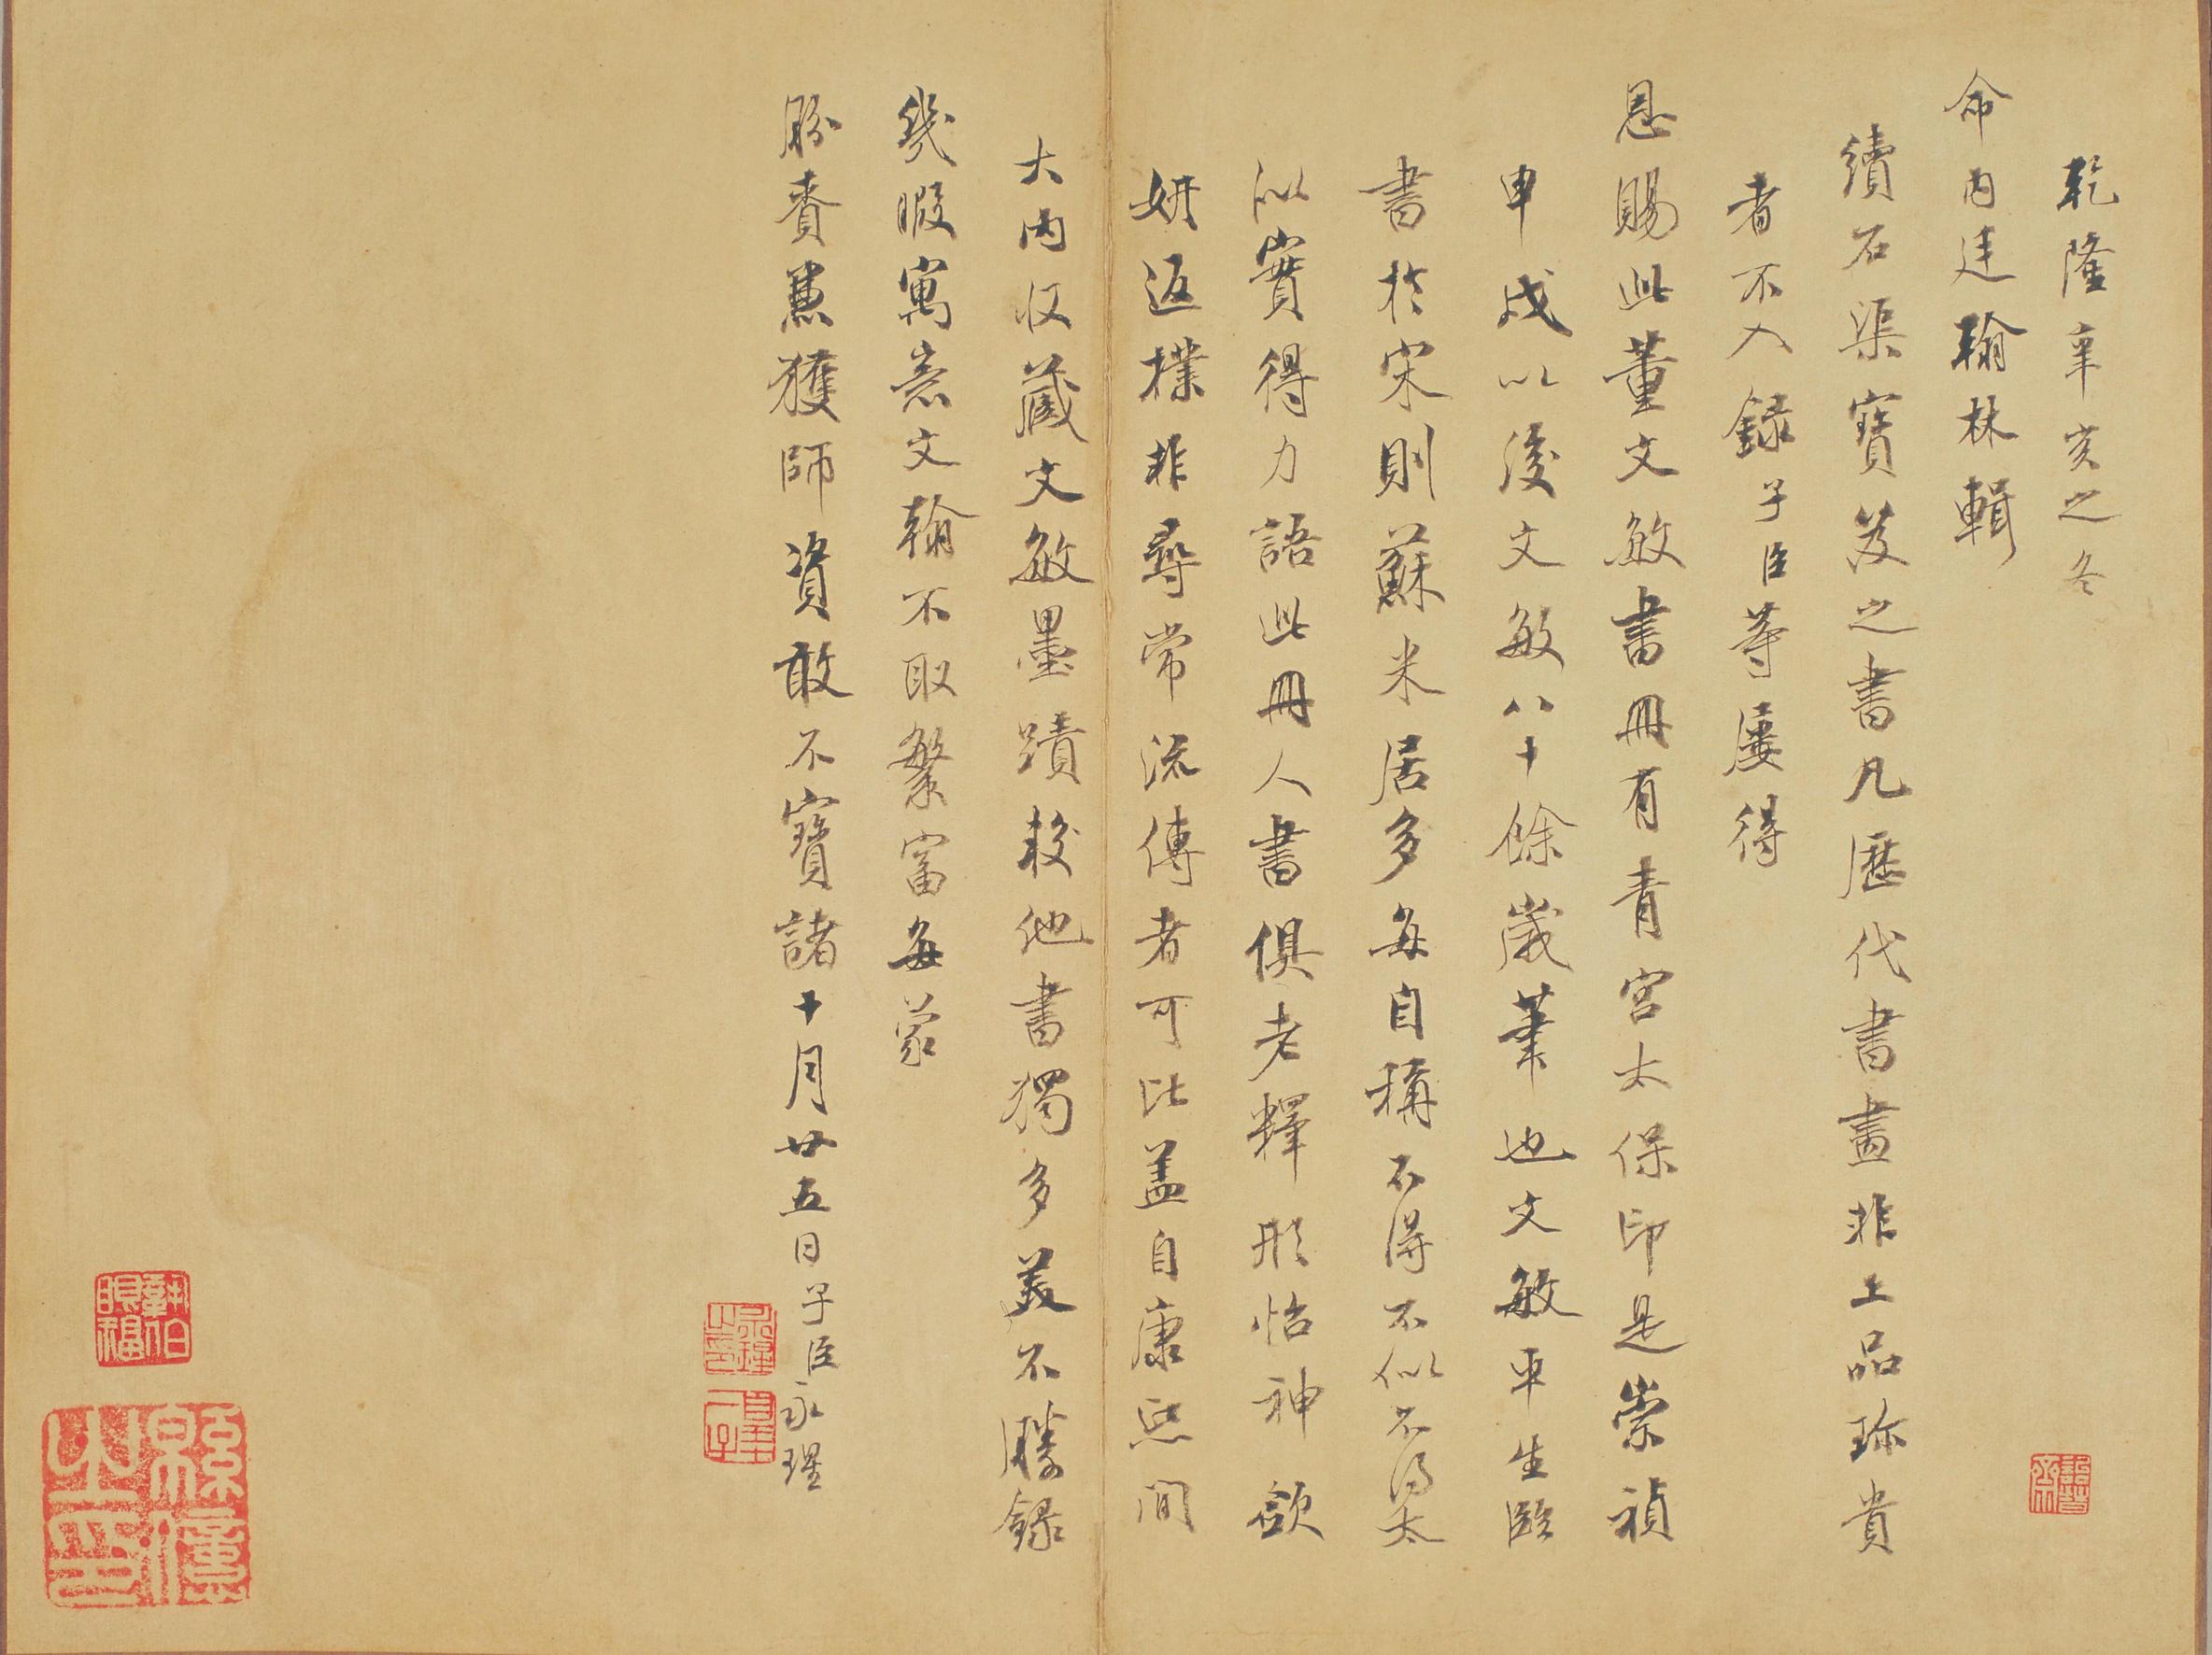 乾隆辛亥之冬
命內廷翰林輯
續石渠寶笈之書凡歷代書畫非上品珎貴
者不入錄子臣等屢得
恩賜此董文敏書冊有青宮太保印是崇禎
申戌以後文敏八十餘歲筆也文敏平生臨
書於宋則蘇米居多每自稱不得不似不得太
似實得力語此冊人書俱老釋形怡神斂
妍返樸非尋常流傳者可比盖自康熙間
大內收藏文敏墨蹟較他書獨多美不勝錄
幾暇寓意文翰不取繁富每蒙
頒賚慙獲師資敢不寶諸十月廿五日子臣永瑆